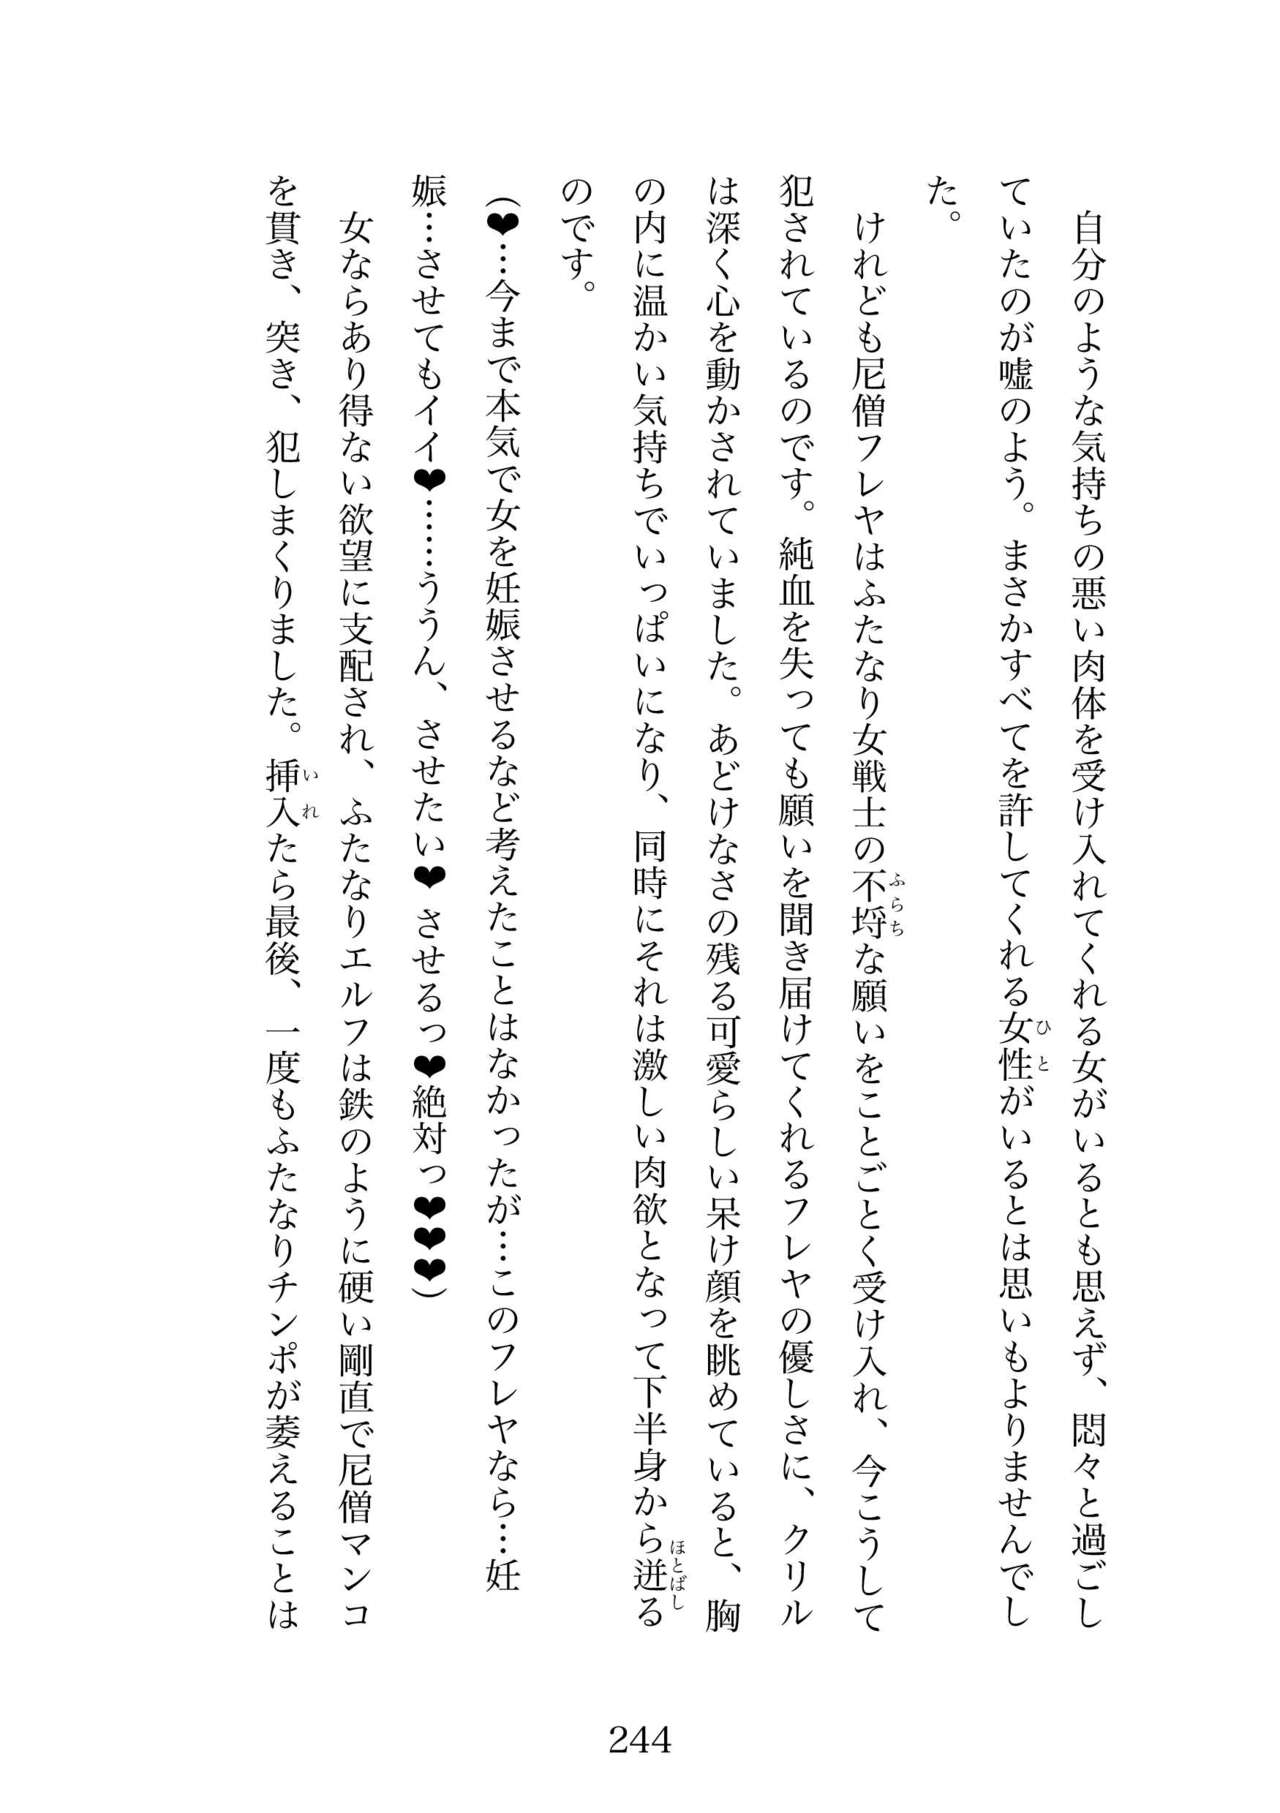 自分のような気持ちの悪い肉体を受け入れてくれる女がいるとも思えず、悶々と過ごし
ていたのが嘘のよう。まさかすべてを許してくれる女性がいるとは思いもよりませんでし
た。
けれども尼僧フレヤはふたなり女戦士の不埒な願いをことごとく受け入れ、今こうして
犯されているのです。純血を失っても願いを聞き届けてくれるフレヤの優しさに、クリル
は深く心を動かされていました。あどけなさの残る可愛らしい呆け顔を眺めていると、胸
の内に温かい気持ちでいっぱいになり、同時にそれは激しい肉欲となって下半身から迸る
のです。
（❤…今まで本気で女を妊娠させるなど考えたことはなかったが…このフレヤなら…妊
娠…させてもイイ❤……ううん、させたい❤ させるっ❤絶対っ❤❤❤）
女ならあり得ない欲望に支配され、ふたなりエルフは鉄のように硬い剛直で尼僧マンコ
を貫き、突き、犯しまくりました。挿入たら最後、一度もふたなりチンポが萎えることは
244